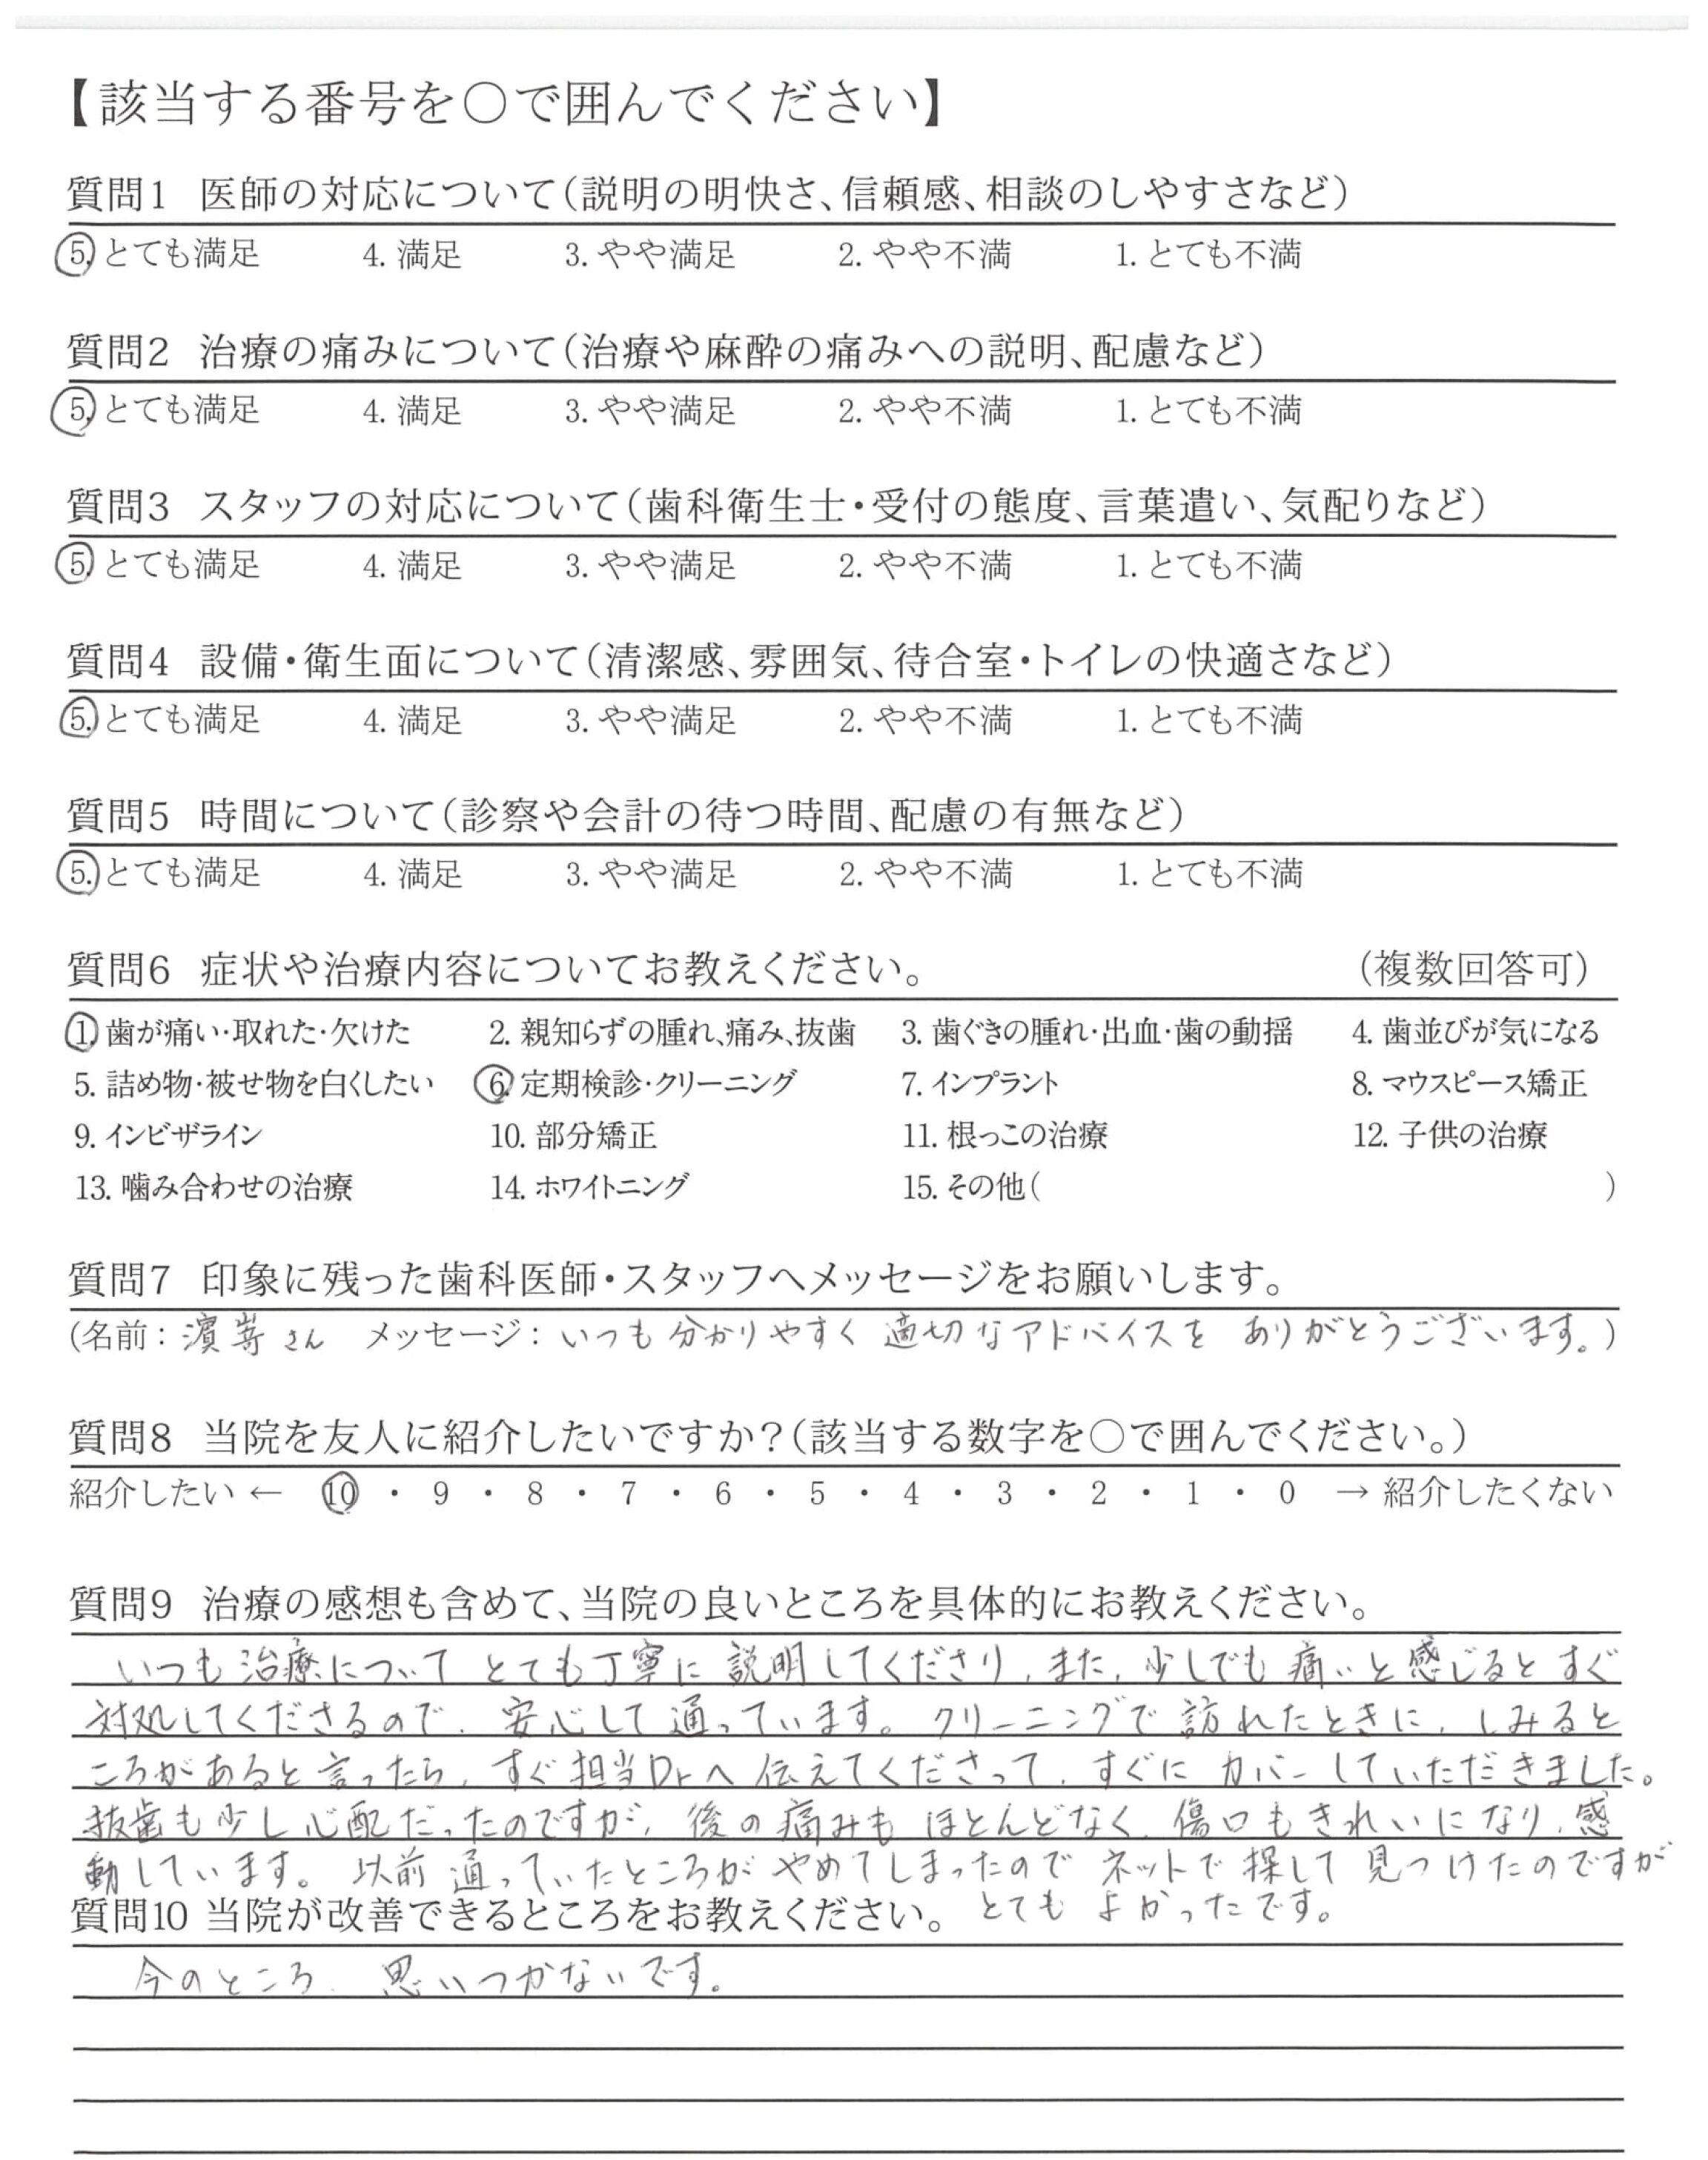 【該当する番号を〇で囲んでください】
質問1 医師の対応について(説明の明快さ、信頼感、相談のしやすさなど)
5. とても満足 4. 満足 3. やや満足 2. やや不満 1. とても不満
質問2 治療の痛みについて(治療や麻酔の痛みへの説明、配慮など)
5. とても満足 4. 満足 3. やや満足 2. やや不満 1. とても不満
質問3 スタッフの対応について(歯科衛生士・受付の態度、言葉遣い、気配りなど)
5. とても満足 4. 満足 3. やや満足 2. やや不満 1. とても不満
質問4 設備・衛生面について(清潔感、雰囲気、待合室・トイレの快適さなど)
5. とても満足 4. 満足 3. やや満足 2. やや不満 1. とても不満
質問5 時間について(診察や会計の待つ時間、配慮の有無など)
5. とても満足 4. 満足 3. やや満足 2. やや不満 1. とても不満
質問6 症状や治療内容についてお教えください。 (複数回答可)
1. 歯が痛い・取れた・欠けた 2. 親知らずの腫れ、痛み、抜歯 3. 歯ぐきの腫れ・出血・歯の動揺 4. 歯並びが気になる
5. 詰め物・被せ物を白くしたい 6. 定期検診・クリーニング 7. インプラント 8. マウスピース矯正
9. インビザライン 10. 部分矯正 11. 根っこの治療 12. 子供の治療
13. 噛み合わせの治療 14. ホワイトニング 15. その他( )
質問7 印象に残った歯科医師・スタッフへメッセージをお願いします。
(名前：濱嵜さん メッセージ：いつも分かりやすく適切なアドバイスを ありがとうございます。)
質問8 当院を友人に紹介したいですか？(該当する数字を〇で囲んでください。)
紹介したい ← 10 ・ 9 ・ 8 ・ 7 ・ 6 ・ 5 ・ 4 ・ 3 ・ 2 ・ 1 ・ 0 → 紹介したくない
質問9 治療の感想も含めて、当院の良いところを具体的にお教えください。
いつも治療について とても丁寧に説明してくださり、また、少しでも痛いと感じるとすぐ
対処してくださるので、安心して通っています。クリーニングで訪れたときに、しみると
ころがあると言ったら、すぐ担当Drへ伝えてくださって、すぐにカバーしていただきました。
抜歯も少し心配だったのですが、後の痛みもほとんどなく、傷口もきれいになり、感
動しています。以前通っていたところがやめてしまったのでネットで探して見つけたのですが
とてもよかったです。
質問10 当院が改善できるところをお教えください。
今のところ、思いつかないです。